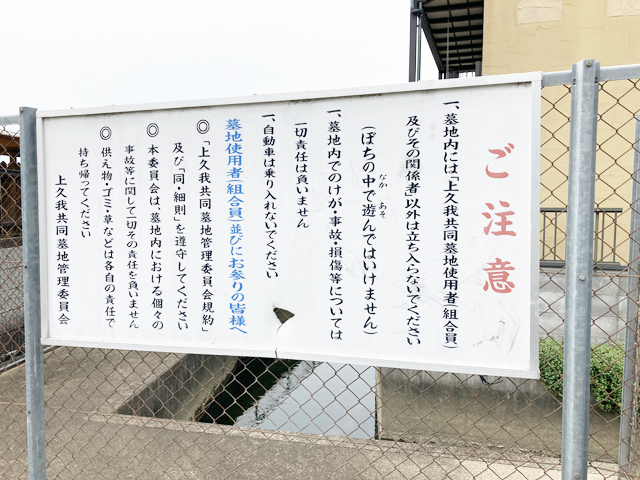 ご注意
一、墓地内には「上久我共同墓地使用者(組合員)
及びその関係者」以外は立ち入らないでください
(ぼちの中で遊んではいけません)
なか あそ
一、墓地内でのけが・事故・損傷等については
一切責任は負いません
一、自動車は乗り入れないでください
墓地使用者(組合員)並びにお参りの皆様へ
◎「上久我共同墓地管理委員会規約」
及び「同・細則」を遵守してください
◎本委員会は、墓地内における個々の
事故等に関して一切その責任を負いません
◎供え物・ゴミ・草などは各自の責任で
持ち帰ってください
上久我共同墓地管理委員会